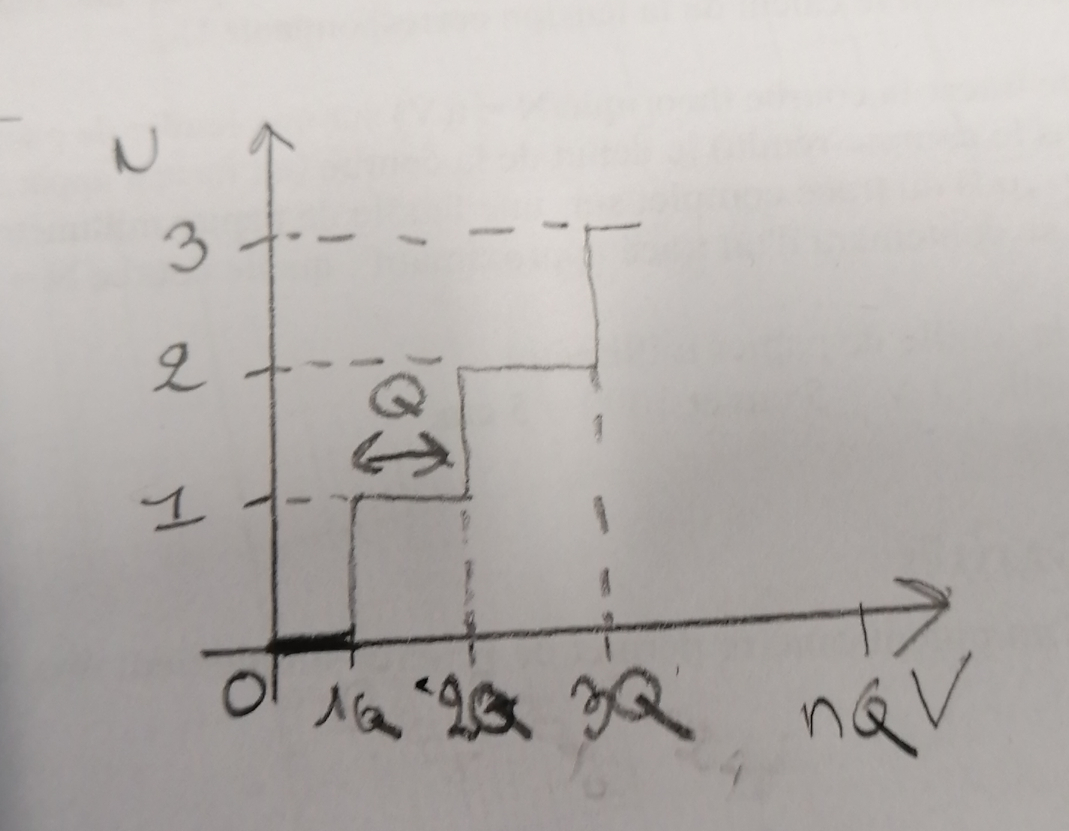 N
3
2
Q
1
0 1Q 2Q 3Q nQ V